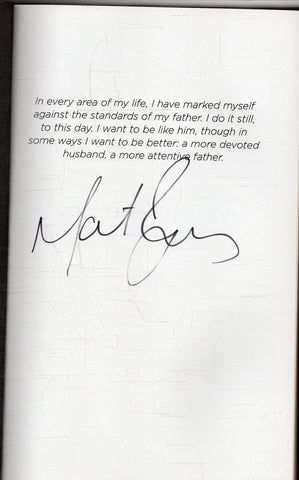 In every area of my life, I have marked myself
against the standards of my father. I do it still,
to this day. I want to be like him, though in
some ways I want to be better: a more devoted
husband, a more attentive father.